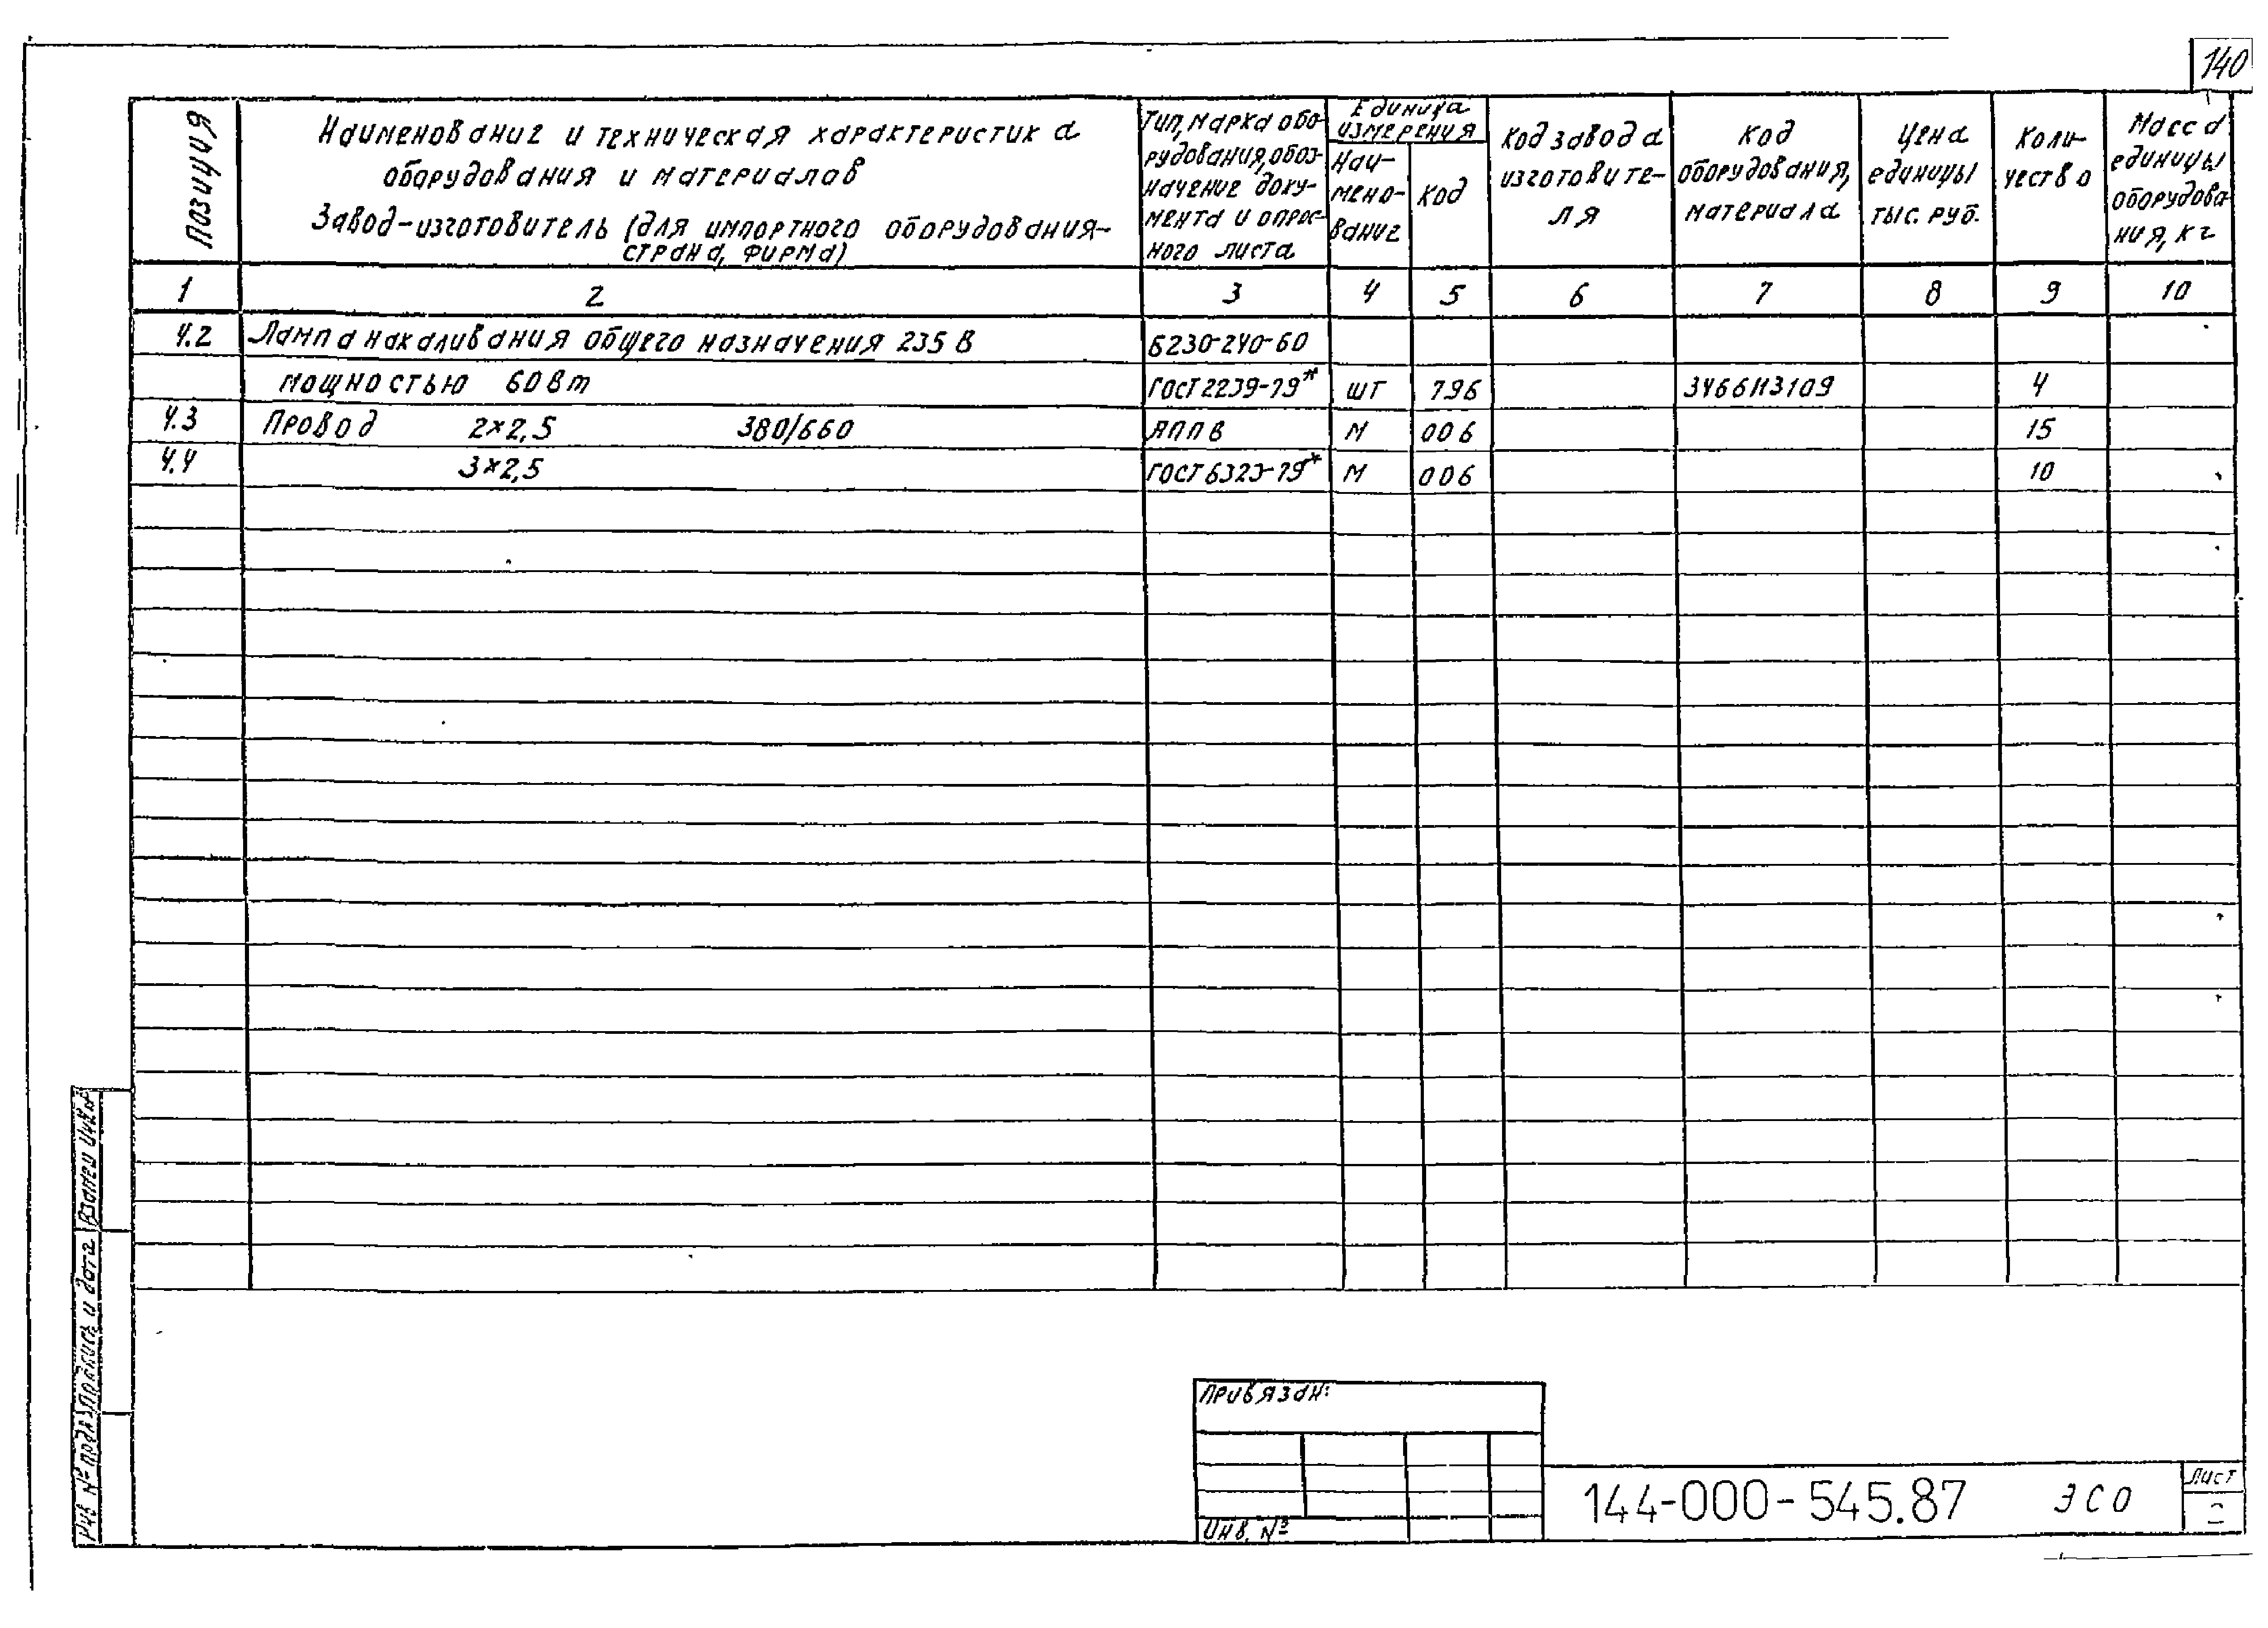 140
Позиция
Наименование и техническая характеристика
оборудования и материалов
Завод-изготовитель (для импортного оборудования-
страна, фирма)
Тип, марка обо-
рудования, обоз-
начение доку-
мента и опрос-
ного листа
Единица
измерения
Наи-
мено-
вание
Код
Код завода
изготовите-
ля
Код
оборудования,
материала
Цена
единицы
тыс. руб.
Коли-
чество
Масса
единицы
оборудова-
ния, кг
1 2 3 4 5 6 7 8 9 10
4.2 Лампа накаливания общего назначения 235 В Б230-240-60
мощностью 60 Вт ГОСТ 2239-79* шт 796 3466113109 4
4.3 Провод 2×2,5 380/660 АППВ м 006 15
4.4 3×2,5 ГОСТ 6323-79* м 006 10
Взамен инв №
Подпись и дата
Инв № подл
Привязан:
Инв. №
144-000-545.87 ЭСО
Лист
2